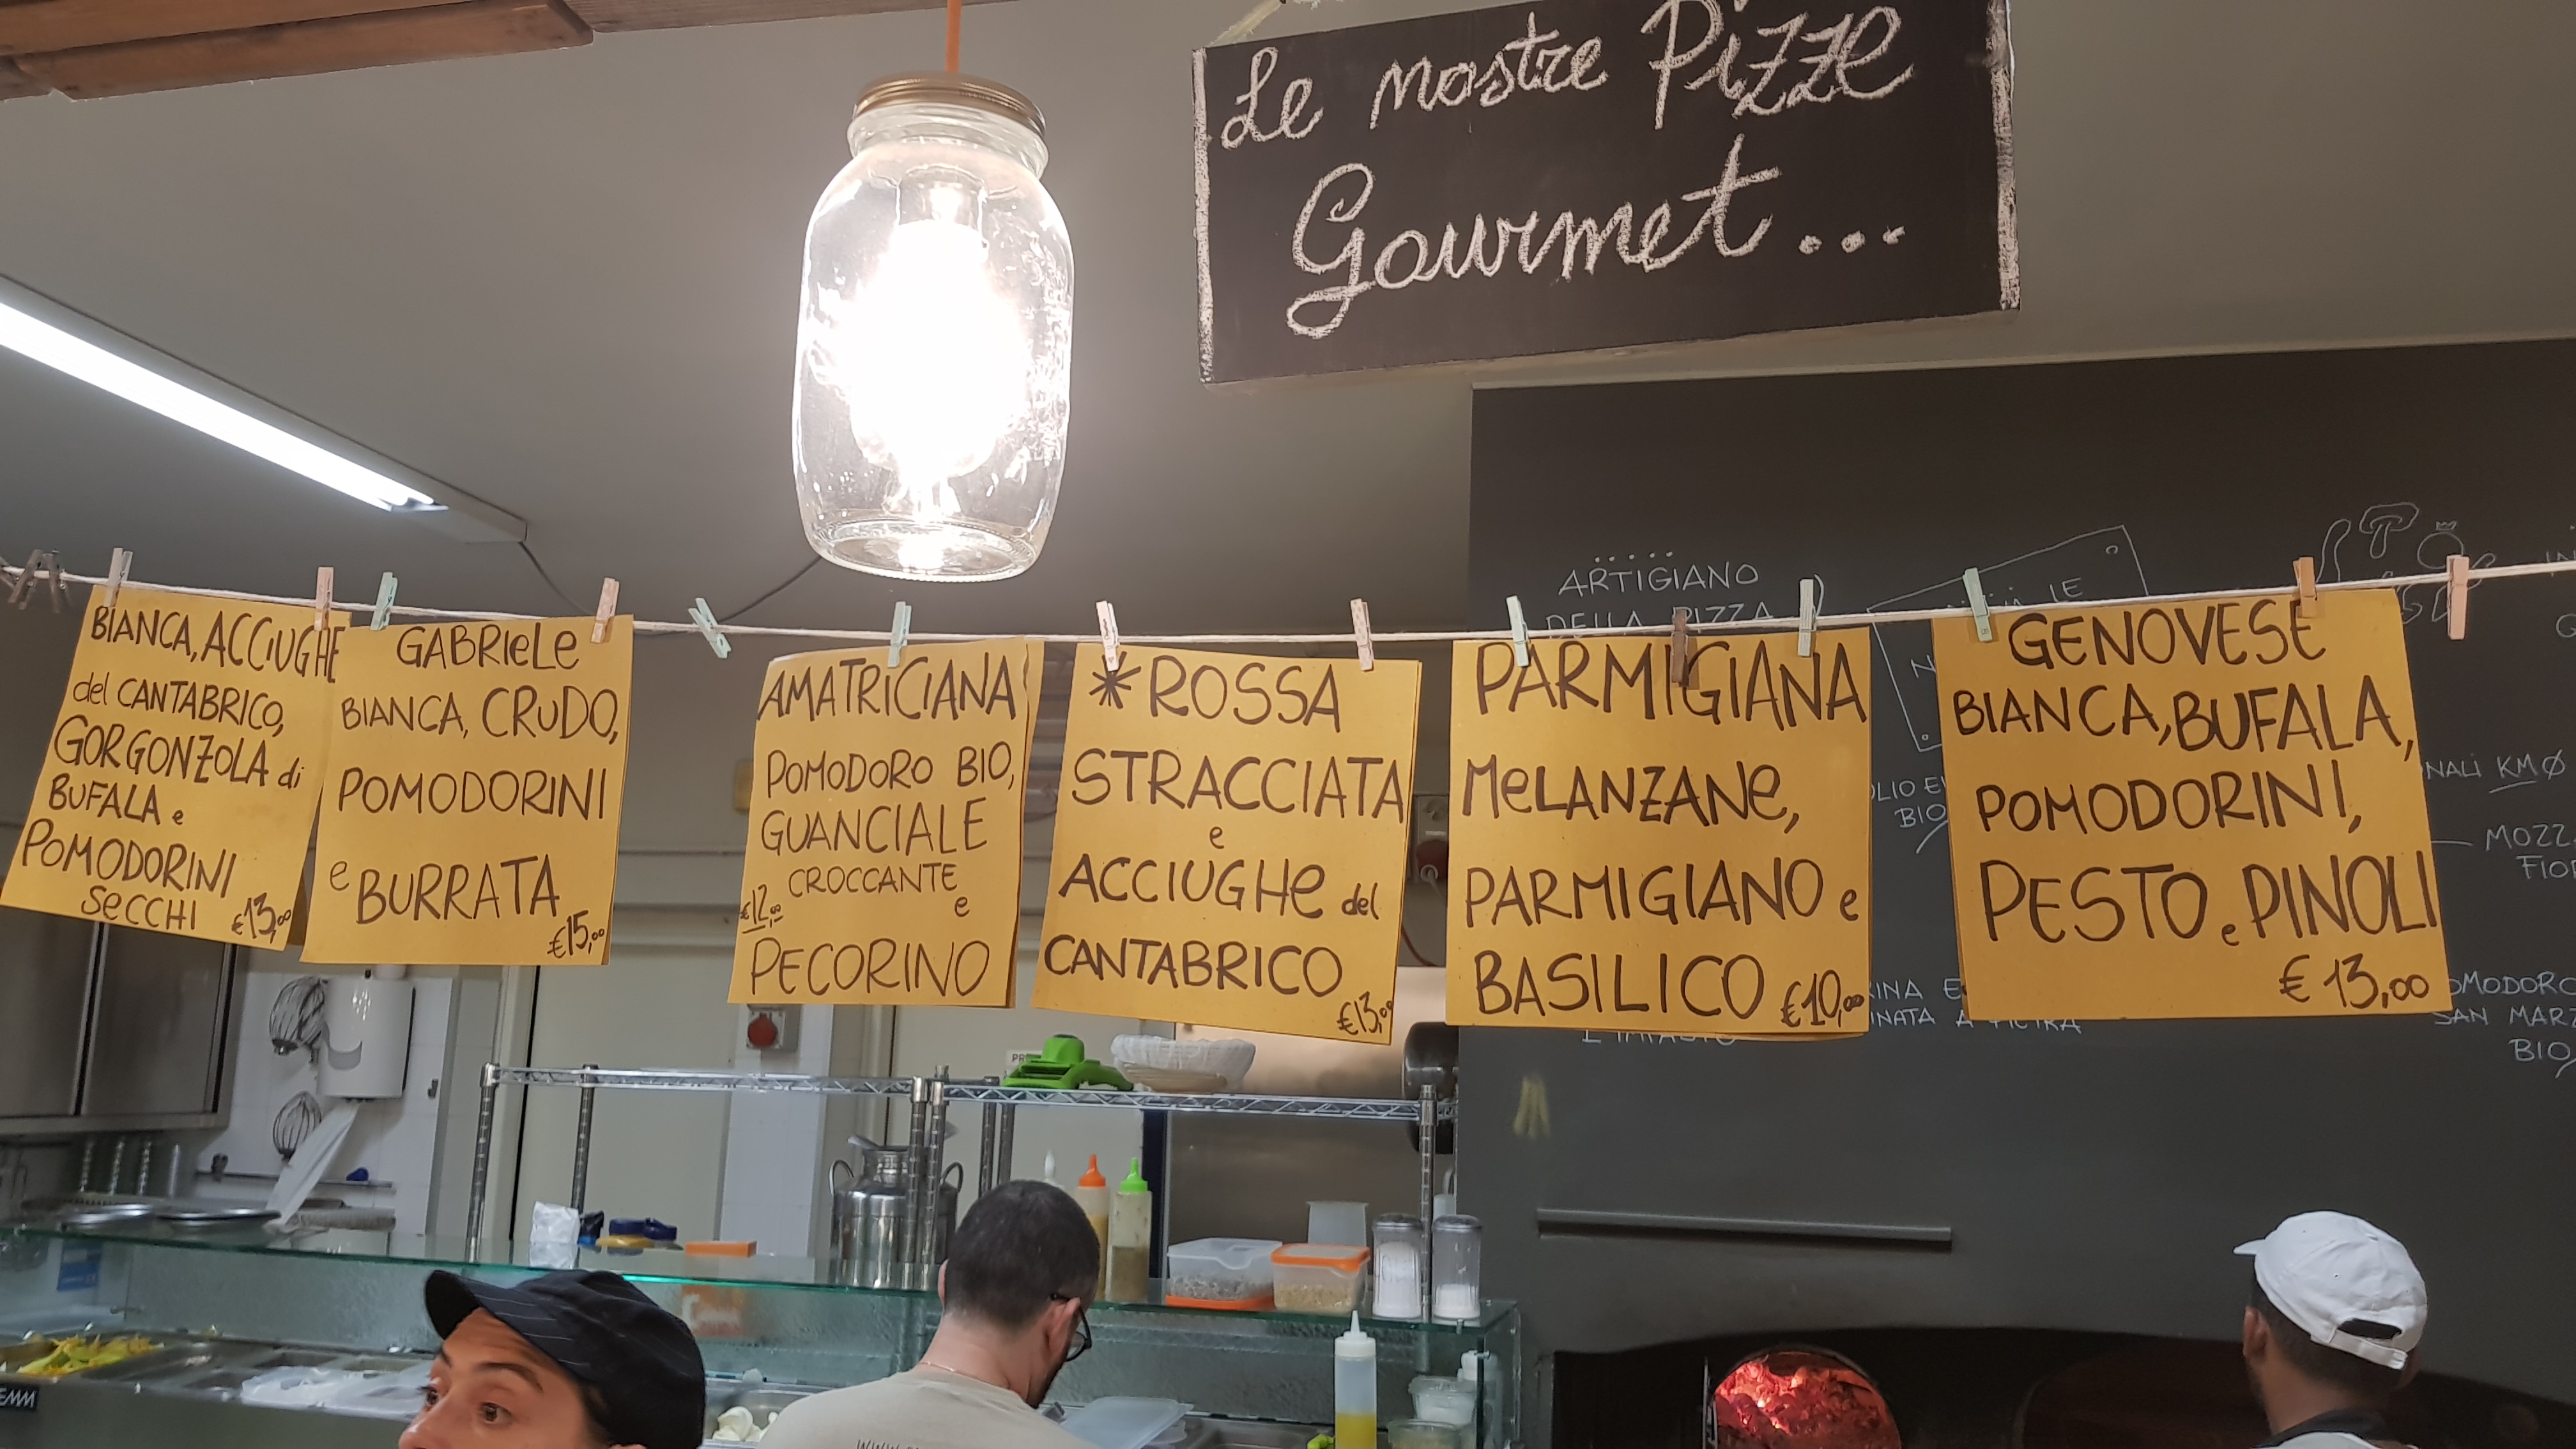 Le nostre Pizze
Gourmet...
BIANCA, ACCiUGHE
del CANTABRICO,
GORGONZOLA di
BUFALA e
POMODORINI
SeCCHI €13,00
GABRIeLe
BIANCA, CRuDO,
POMODORINI
e BURRATA
€15,00
AMATRiCIANA
POMODORO BIO,
GUANCIALE
CROCCANTE
€12,00 e
PECORINO
*ROSSA
STRACCIATA
e
ACCIUGHe del
CANTABRICO
€13,00
PARMIGIANA
MeLANZANe,
PARMIGIANO e
BASILICO €10,00
GENOVESE
BIANCA, BUFALA,
POMODORINI,
PESTO e PINOLI
€ 13,00
ARTIGIANO
DELLA PIZZA
LE
BIO
KM0
L'IMPASTO
SAN MARZ
BIO